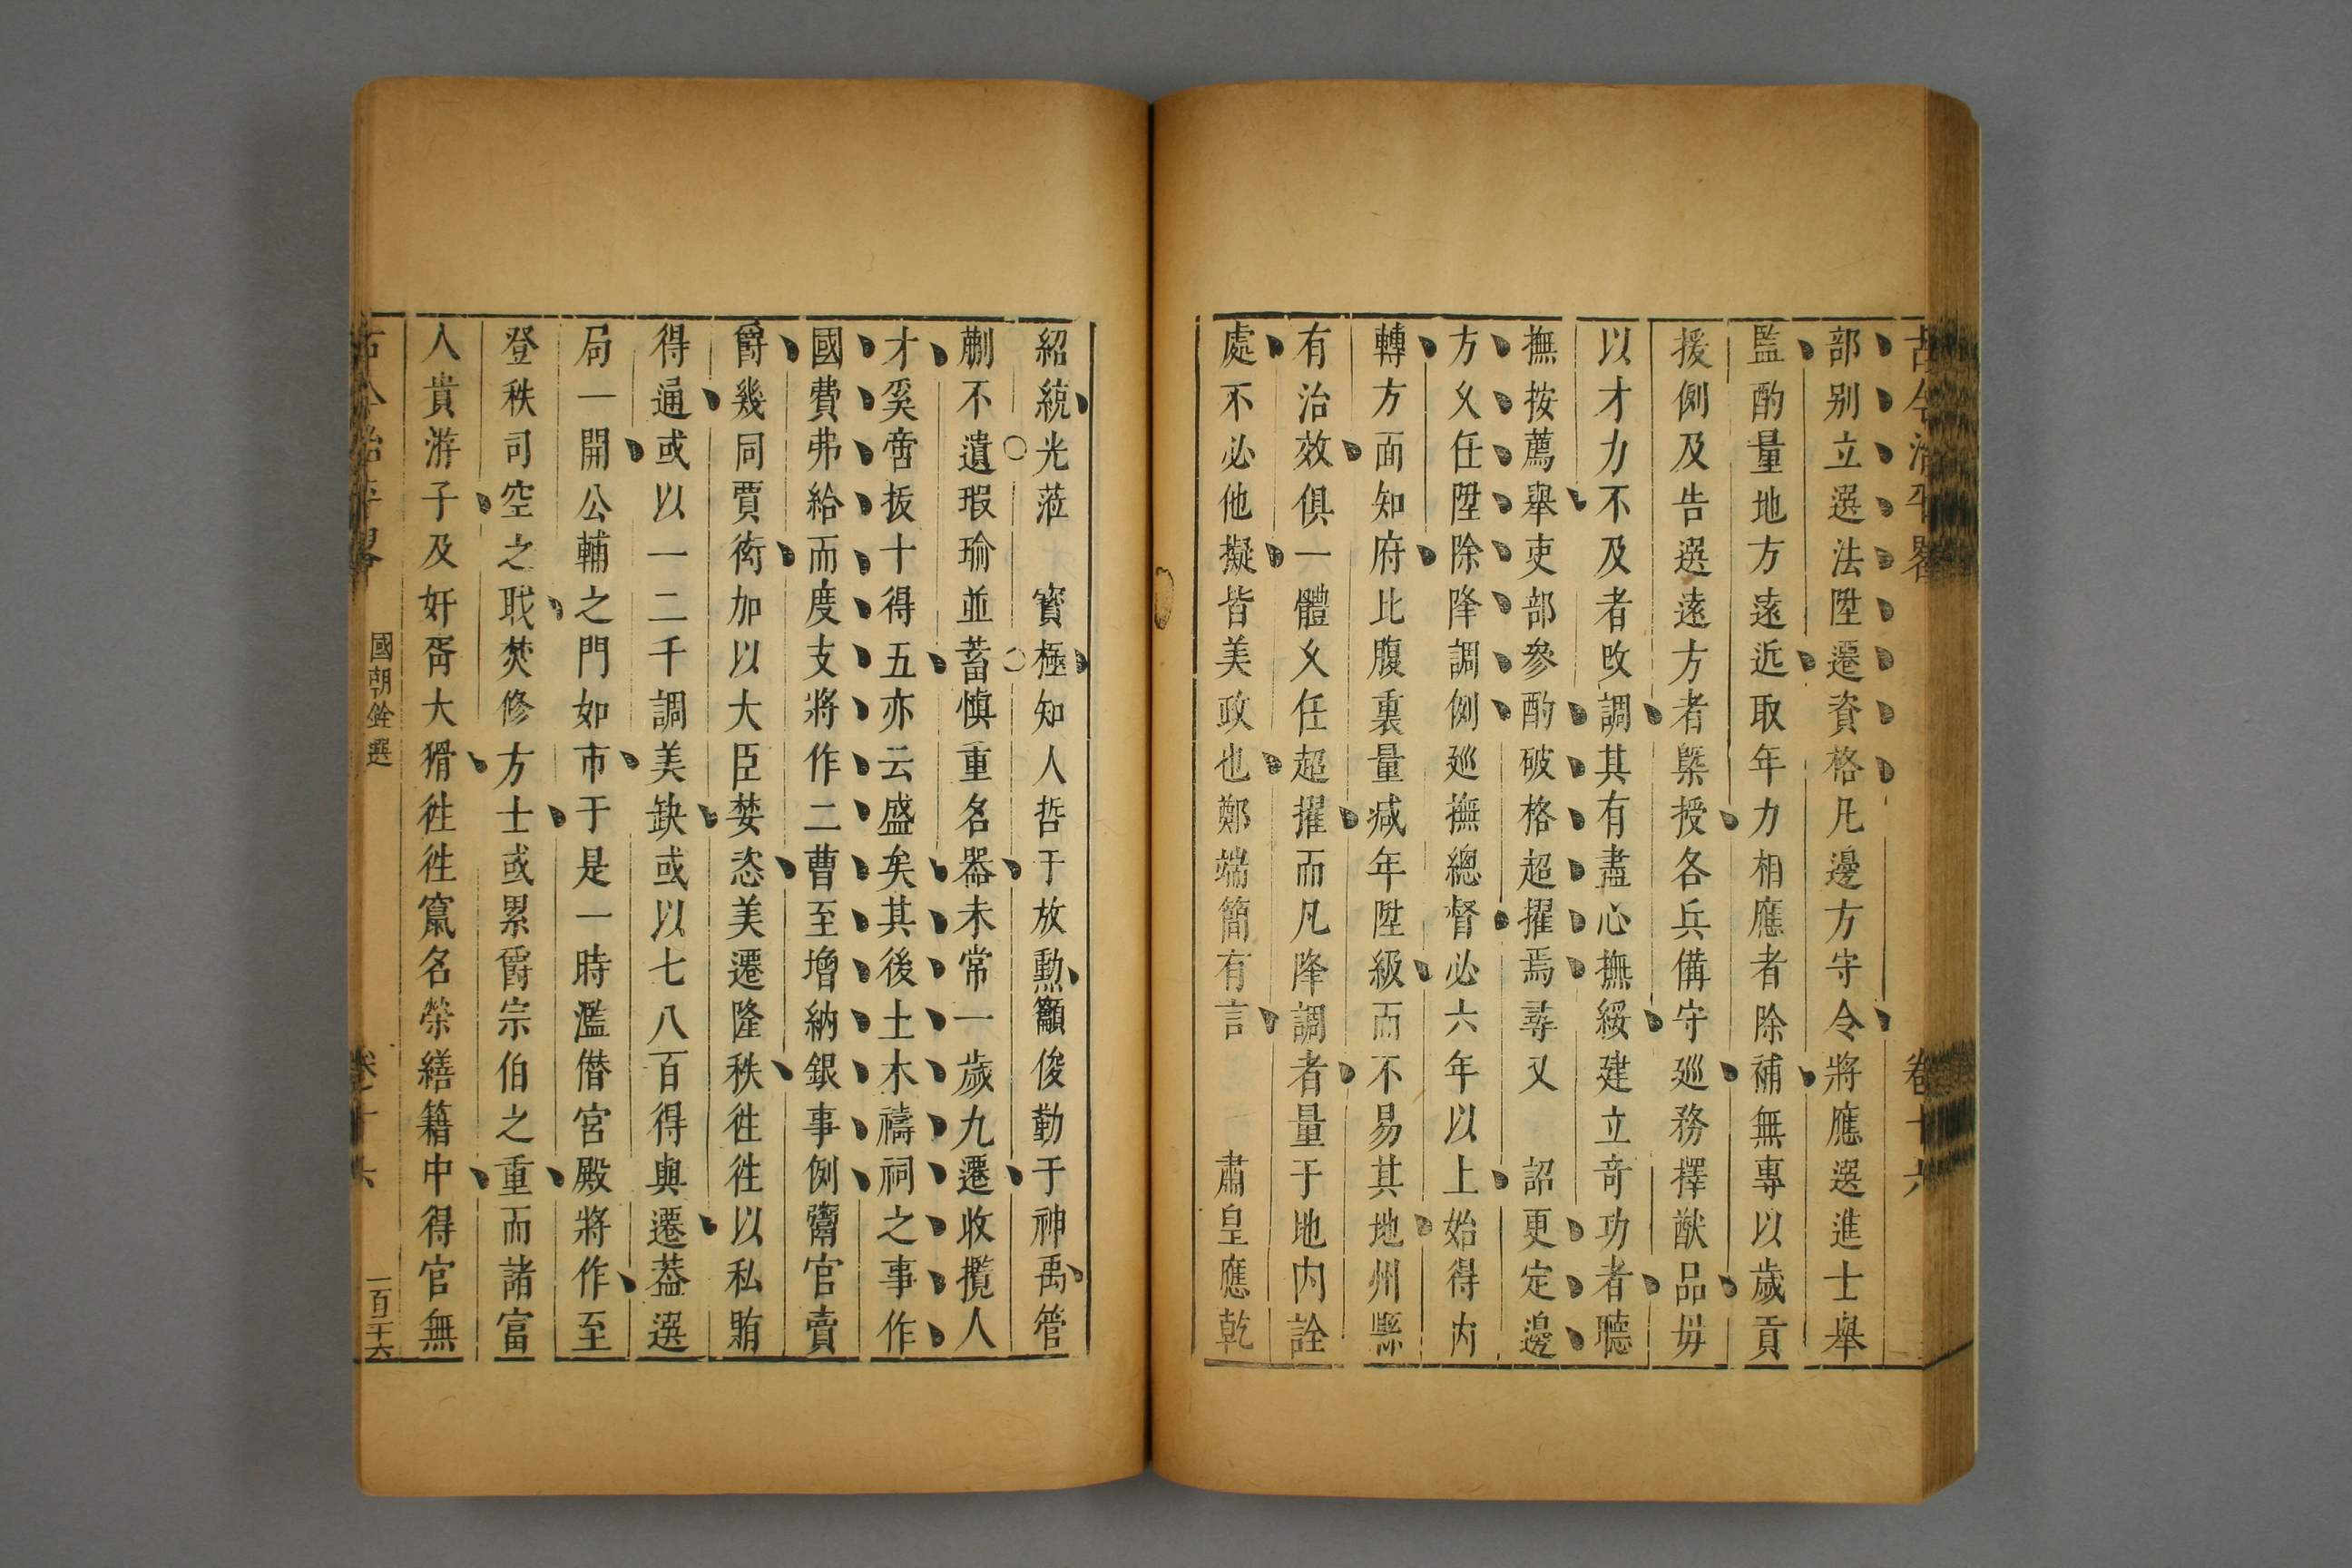 古今治平畧 卷十六
部別立選法陞遷資格凡邊方守令將應選進士舉
監酌量地方遠近取年力相應者除補無專以歲貢
援例及告選遠方者槩授各兵備守廵務擇猷品毋
以才力不及者改調其有盡心撫綏建立奇功者聽
撫按薦舉吏部參酌破格超擢焉尋又 詔更定邊
方乆任陞除降調例廵撫總督必六年以上始得內
轉方面知府比腹裏量減年陞級而不易其地州縣
有治效俱一體乆任超擢而凡降調者量于地內詮
處不必他擬皆美政也鄭端簡有言 肅皇應乾
紹統光蒞 寳極知人哲于放勲籲俊勤于神禹管
蒯不遺瑕瑜並蓄慎重名器未常一歲九遷收攬人
才奚啻拔十得五亦云盛矣其後土木禱祠之事作
國費弗給而度支將作二曹至增納銀事例鬻官賣
爵幾同賈衒加以大臣婪恣美遷隆秩徃徃以私賄
得通或以一二千調美缺或以七八百得與遷葢選
局一開公輔之門如市于是一時濫僣宮殿將作至
登秩司空之戝焚修方士或累爵宗伯之重而諸富
人貴游子及奸胥大猾徃徃竄名榮繕籍中得官無
古今治平畧 國朝銓選 卷十六 一百三十六